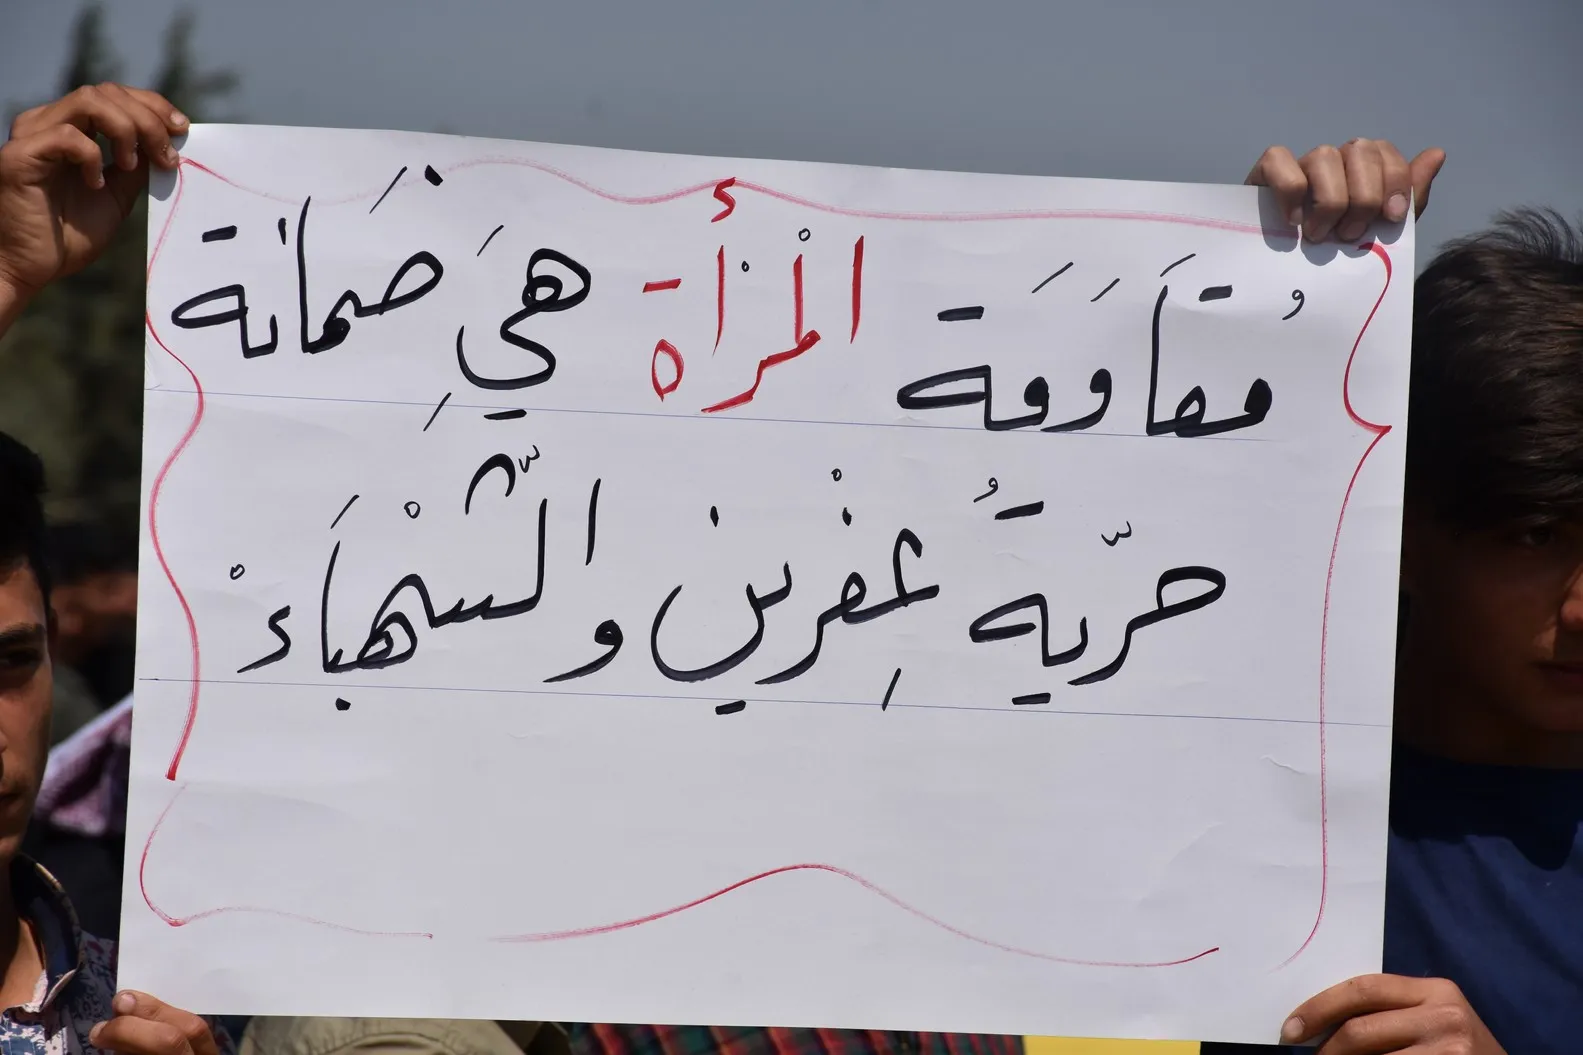 مُقَاوَمَة المْرْأَة هِيَ ضَمانة
حرّيةُ عِفْرين والشّهْبَاءْ